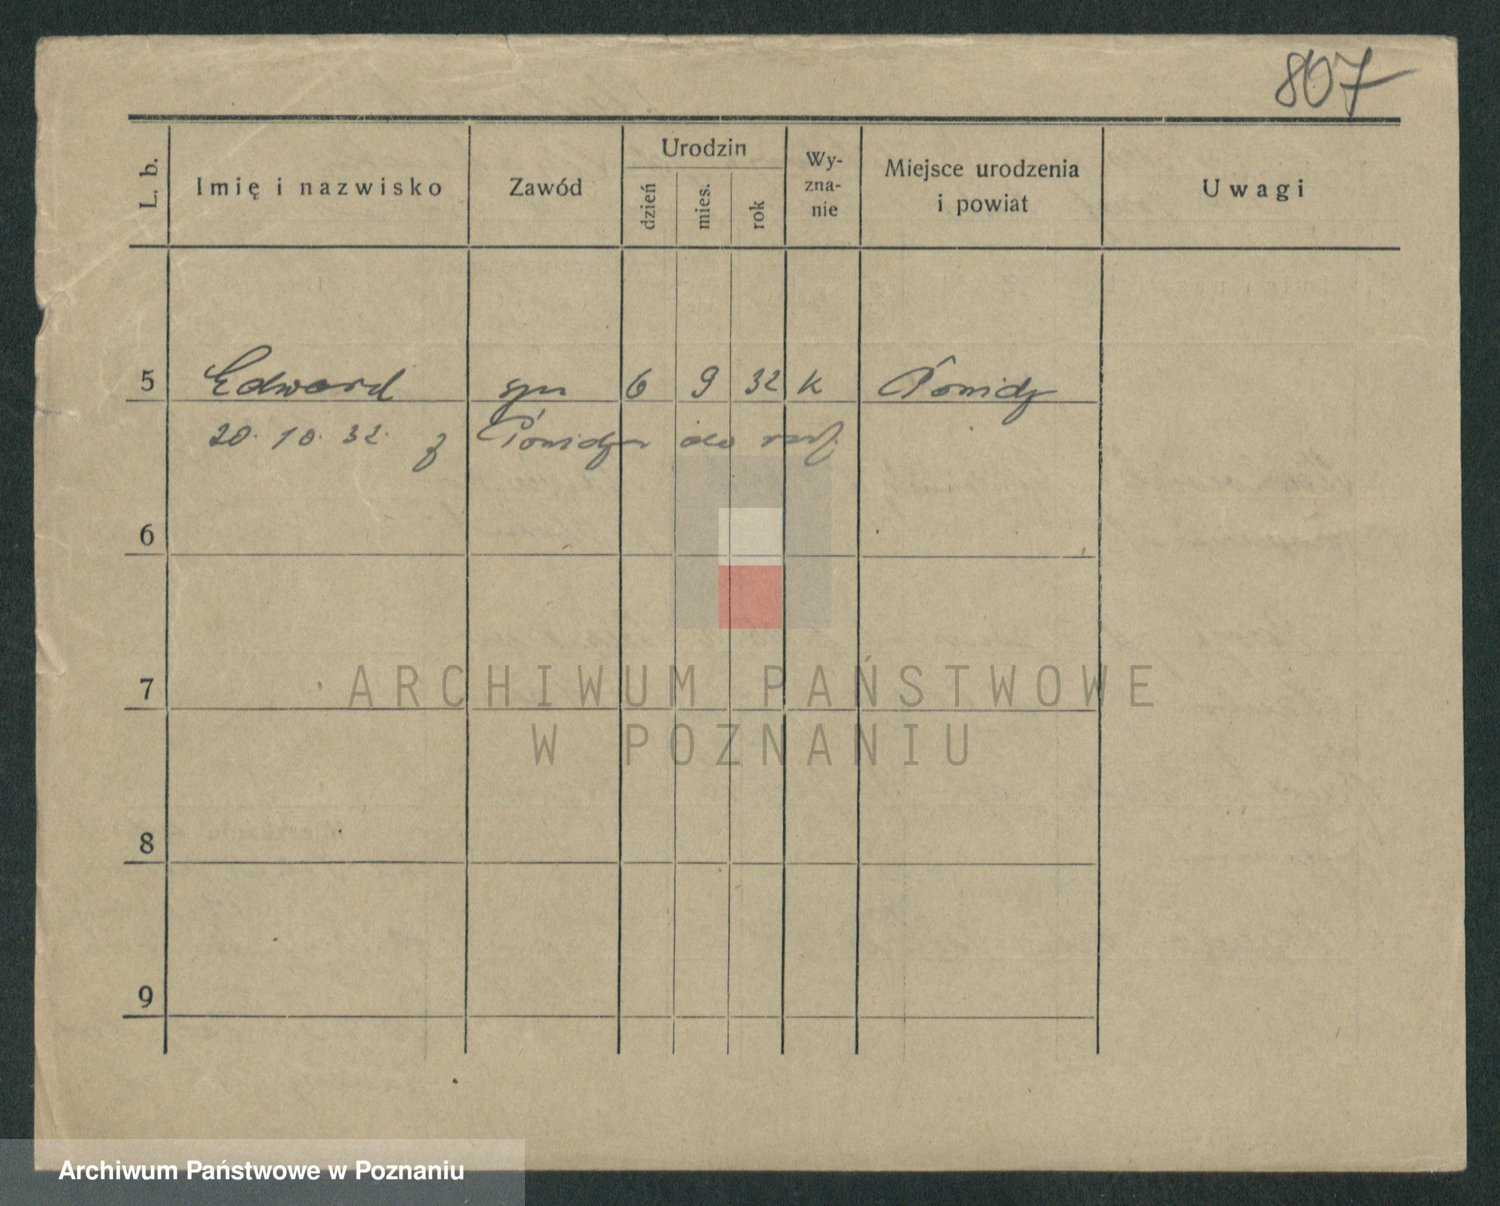 807
L. b.
Imię i nazwisko
Zawód
Urodzin
dzień
mies.
rok
Wy-
zna-
nie
Miejsce urodzenia
i powiat
Uwagi
5 Edward syn 6 9 32 k
20. 10. 32. z do
6
7
8
9
ARCHIWUM PAŃSTWOWE
W POZNANIU
Archiwum Państwowe w Poznaniu